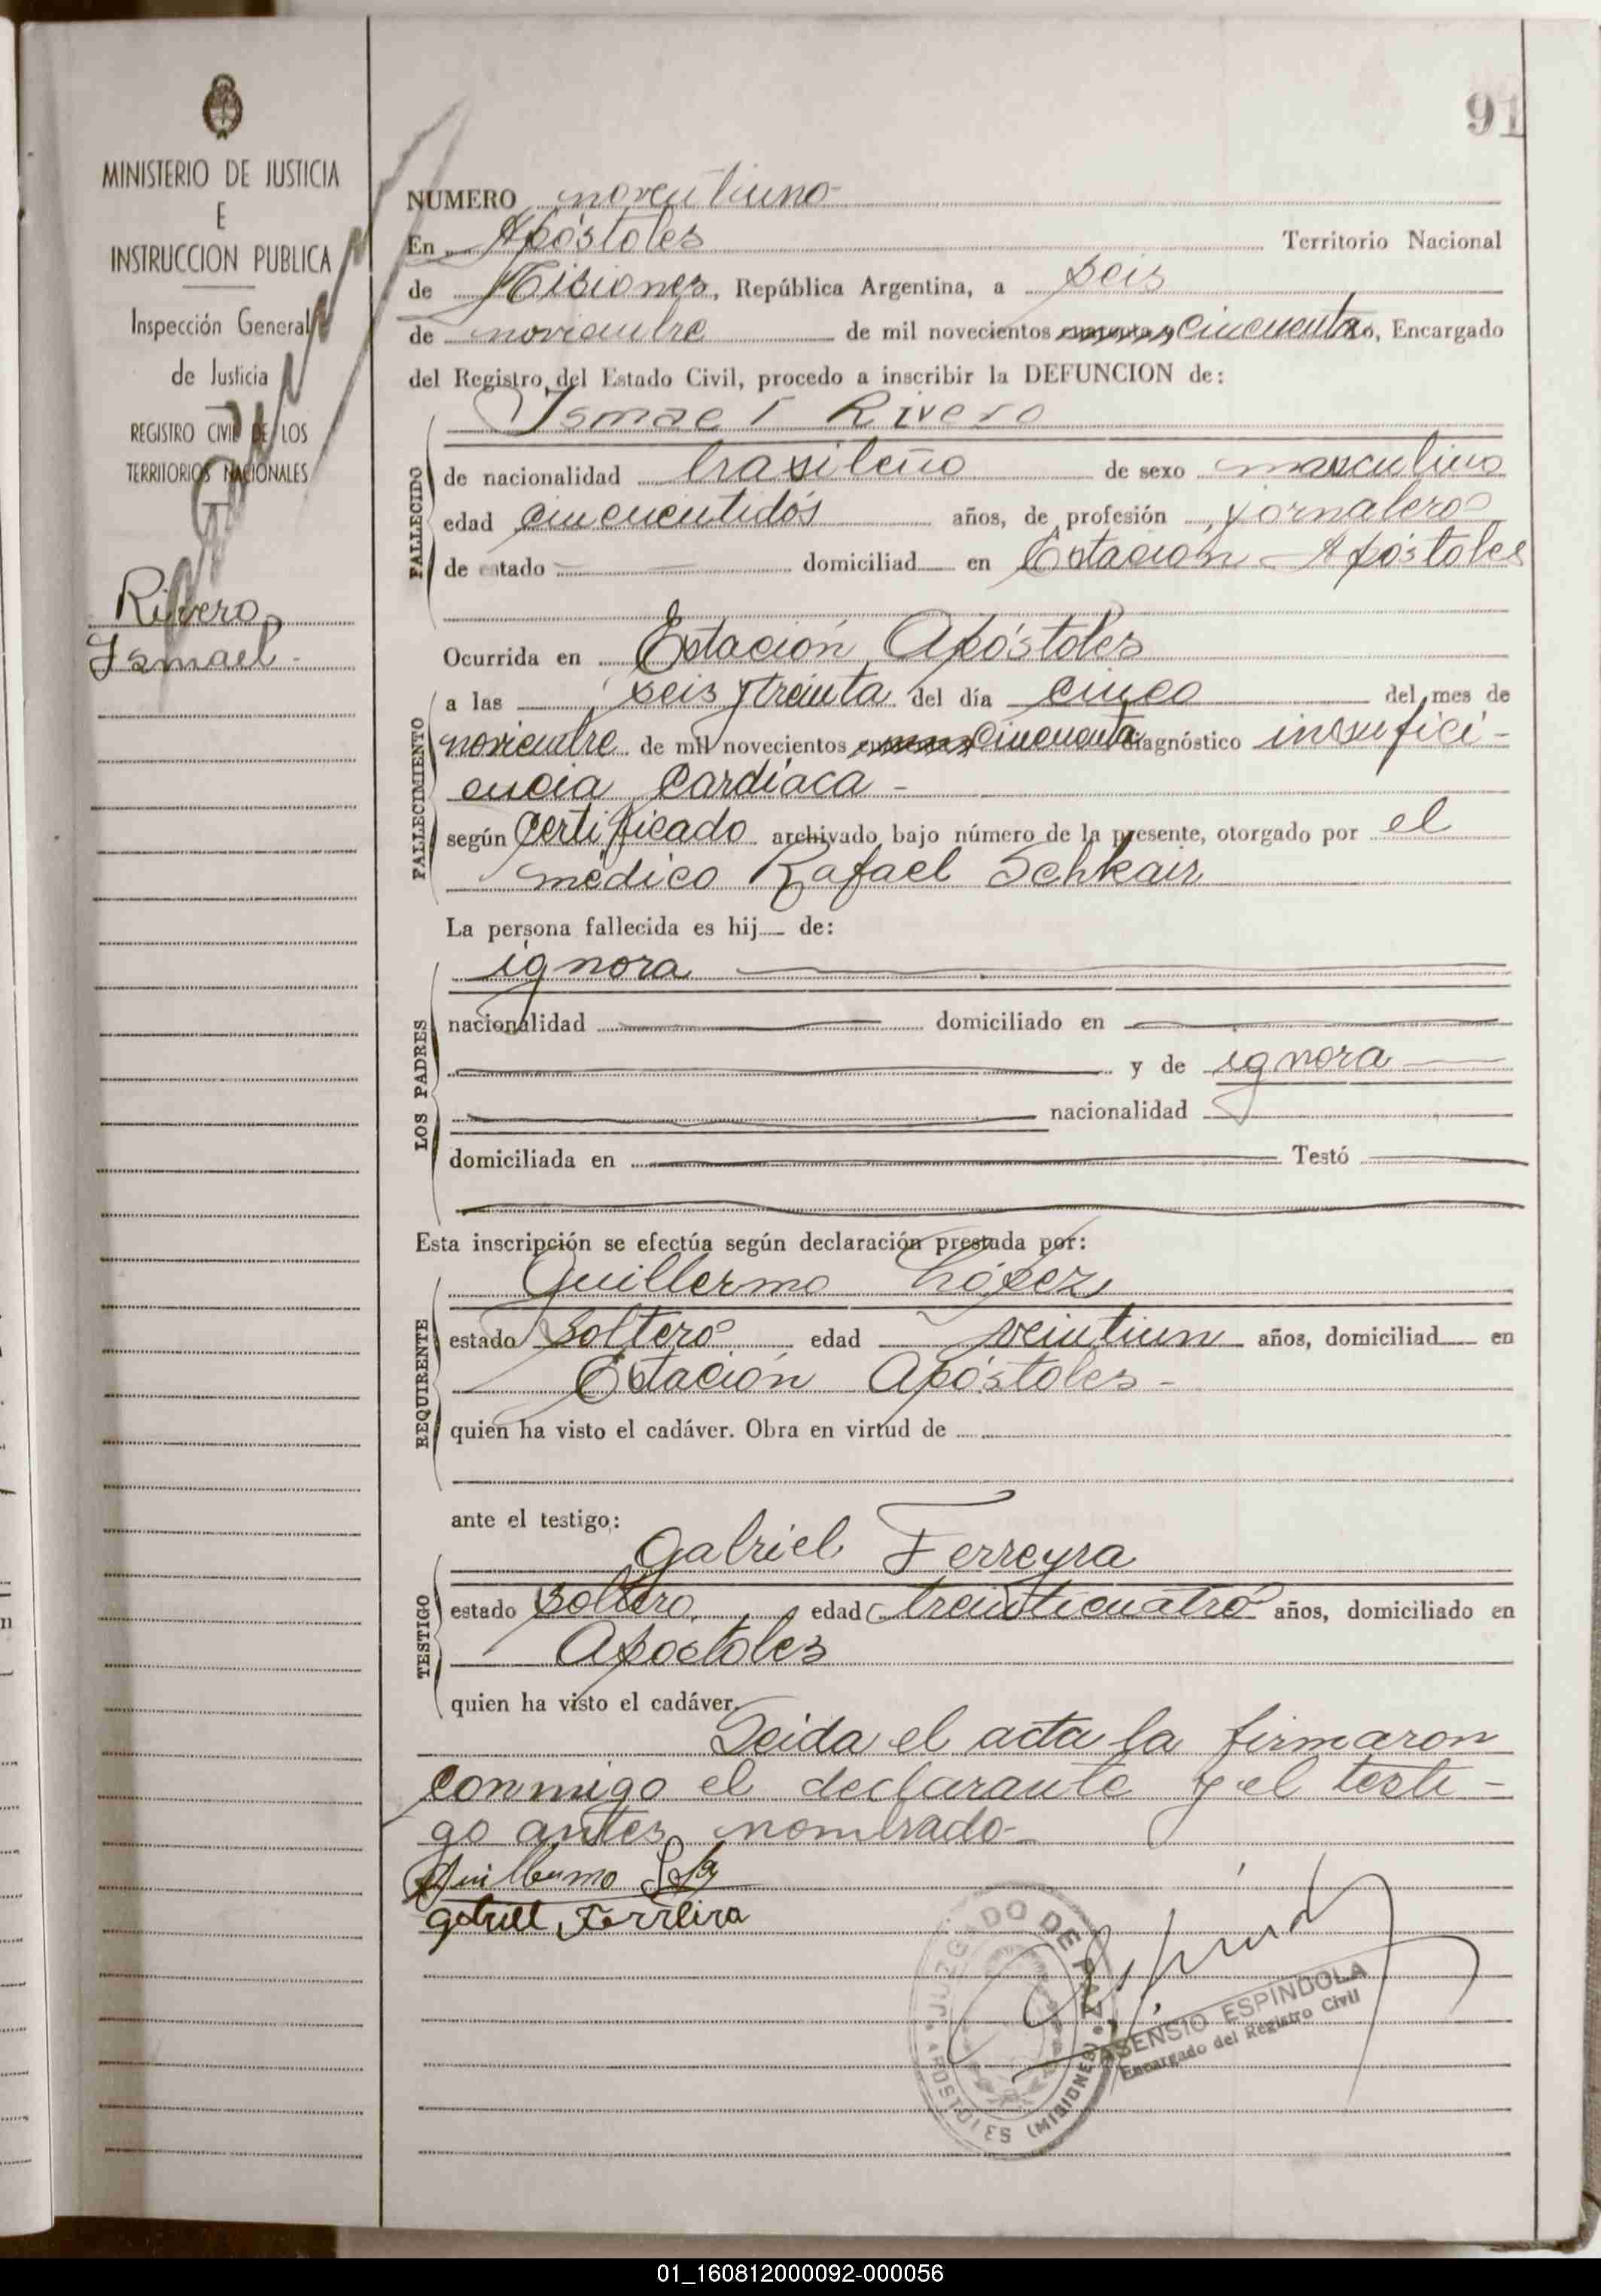 91
MINISTERIO DE JUSTICIA
E
INSTRUCCION PUBLICA
Inspección General
de Justicia
REGISTRO CIVIL DE LOS
TERRITORIOS NACIONALES
Rivero
Ismael -
NUMERO noventiuno-
En Apóstoles Territorio Nacional
de Misiones, República Argentina, a seis
de noviembre de mil novecientos cuarenta y cincuenta, Encargado
del Registro del Estado Civil, procedo a inscribir la DEFUNCION de:
Ismael Rivero
FALLECIDO
de nacionalidad brasileño de sexo masculino
edad cincuentidós años, de profesión jornalero
de estado domiciliad en Estación - Apóstoles
Ocurrida en Estación Apóstoles
FALLECIMIENTO
a las seis y treinta del día cinco del mes de
noviembre de mil novecientos cincuenta diagnóstico insufici-
encia cardíaca -
según certificado archivado bajo número de la presente, otorgado por el
médico Rafael Schkair
La persona fallecida es hij de:
LOS PADRES
ignora
nacionalidad domiciliado en
y de ignora
nacionalidad
domiciliada en Testó
Esta inscripción se efectúa según declaración prestada por:
REQUIRENTE
Guillermo López
estado soltero edad veintiun años, domiciliad en
Estación Apóstoles -
quien ha visto el cadáver. Obra en virtud de
ante el testigo:
TESTIGO
Gabriel Ferreyra
estado soltero edad treinticuatro años, domiciliado en
Apóstoles
quien ha visto el cadáver.
Leida el acta la firmaron
conmigo el declarante y el testi-
go antes nombrado-
Guillermo
Gabriel Ferreira
JUZGADO DE PAZ
APOSTOLES (MISIONES)
ASENSIO ESPINDOLA
Encargado del Registro Civil
01_160812000092-000056